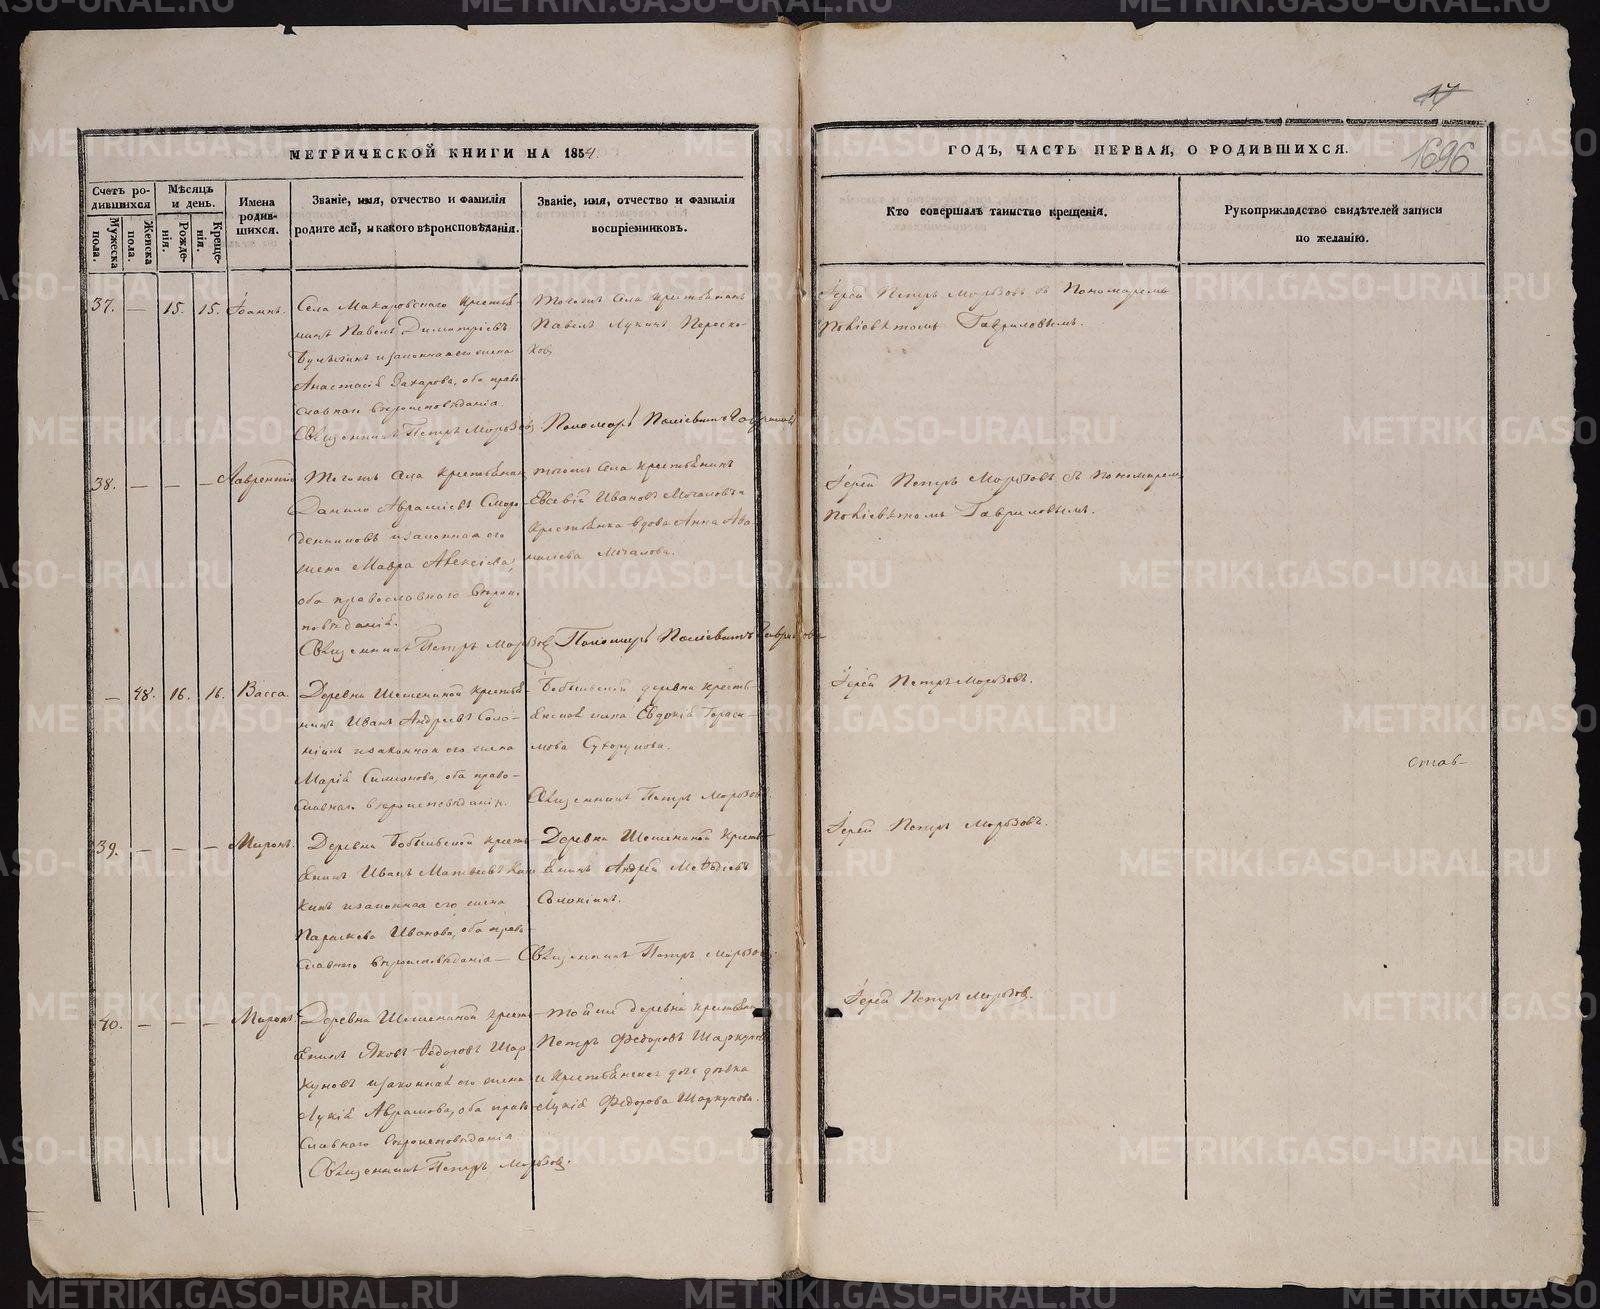 17
1696
МЕТРИЧЕСКОЙ КНИГИ НА 1854.
ГОДЪ, ЧАСТЬ ПЕРВАЯ, О РОДИВШИХСЯ.
Счетъ родившихся
Мужеска пола.
Женска пола.
Мѣсяцъ и день.
Рожденія.
Крещенія.
Имена родившихся.
Званіе, имя, отчество и фамилія
родителей, и какого вѣроисповѣданія.
Званіе, имя, отчество и фамилія
воспріемниковъ.
Кто совершалъ таинство крещенія.
Рукоприкладство свидѣтелей записи
по желанію.
37. — 15. 15. Іоаннъ.
Села Макаровскаго крестья-
нинъ Павелъ Димитріевъ
и законная его жена
Анастасія Захарова, оба право
славнаго вѣроисповѣданія.
Священникъ Петръ Морозовъ
Тогожъ села крестьянинъ
Павелъ Лукинъ
Пономарь Поліевктъ Гавриловъ
Іерей Петръ Морозовъ съ Пономаремъ
Поліевктомъ Гавриловымъ.
38. — — — Лаврентій
Тогожъ села крестьянинъ
Данило Авраміевъ
и законная его
жена Мавра Алексіева,
оба православнаго вѣроис-
повѣданія.
Священникъ Петръ Морозовъ
тогожъ села крестьянинъ
Евсевій Ивановъ Мочаловъ и
крестьянка вдова Анна
Мочалова.
Пономарь Поліевктъ Гавриловъ
Іерей Петръ Морозовъ съ пономаремъ
Поліевктомъ Гавриловымъ.
— 48. 16. 16. Васса.
Деревни Шешениной крестья-
нинъ Иванъ Андреевъ Соло-
нинъ и законная его жена
Марія Симіонова, оба право-
славнаго вѣроисповѣданія.
деревни кресть-
янская жена Евдокія Гераси-
мова Сухорукова.
Священникъ Петръ Морозовъ.
Іерей Петръ Морозовъ.
39. — — — Миронъ.
Деревни кресть-
янинъ Иванъ Матвеевъ
и законная его жена
Параскева Иванова, оба право-
славнаго вѣроисповѣданія —
Деревни Шешениной кресть-
янинъ Андрей Меѳодіевъ
Солонинъ.
Священникъ Петръ Морозовъ.
Іерей Петръ Морозовъ.
40. — — — Миронъ.
Деревни Шешениной кресть-
янинъ Яковъ Ѳедоровъ Шар-
куновъ и законная его жена
Лукія Аврамова, оба право
славнаго вѣроисповѣданія.
Священникъ Петръ Морозовъ.
той же деревни крестьянинъ
Петръ Ѳедоровъ Шаркуновъ
и крестьянская дочь дѣвка
Лукія Ѳедорова Шаркунова.
Іерей Петръ Морозовъ.
METRIKI.GASO-URAL.RU